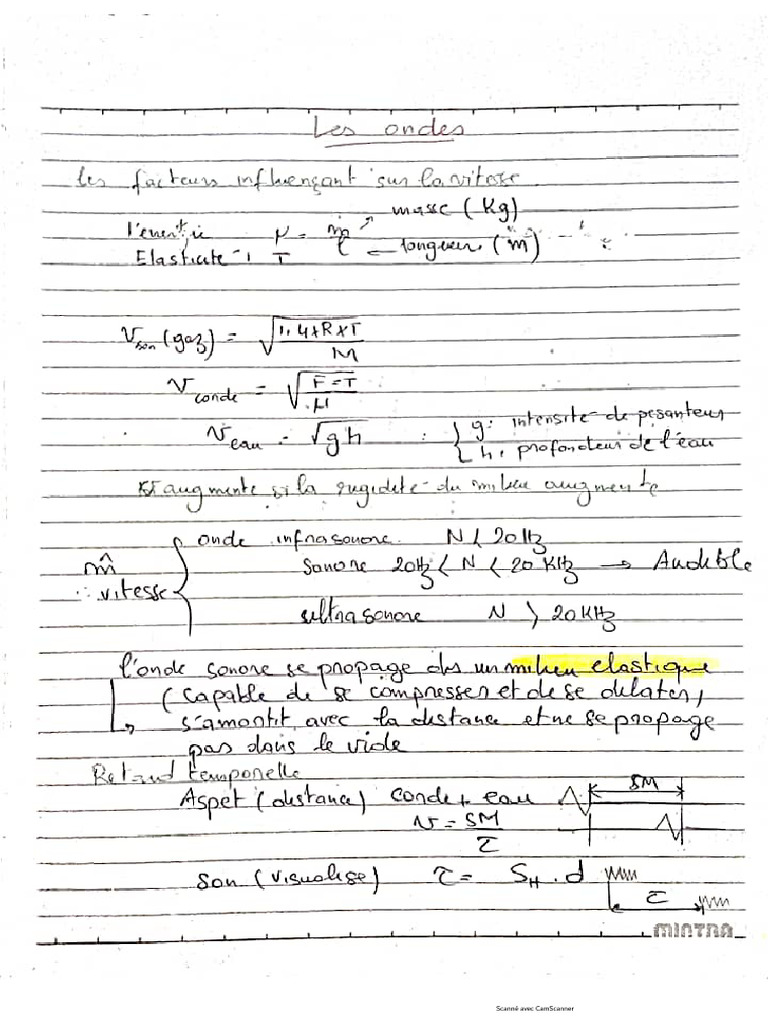 Les ondes
les facteurs influençant sur la vitesse
masse (Kg)
l'enertie μ = m/l longueur (m)
Elasticité T
V son (gaz) = √(1,4×R×T / M)
V conde = √(F=T / μ)
V eau = √gh { g: intensité de pesanteur
h: profondeur de l'eau
augmente si la rugidité du milieu augmente
onde infrasonore N < 20Hz
m̂ vitesse { Sonore 20Hz < N < 20 KHz → Audible
ultrasonore N > 20KHz
l'onde sonore se propage ds un milieu elastique
(capable de se compresser et de se dilater,
↳ s'amortit avec la distance et ne se propage
pas dans le vide
Retard temporelle
Aspet (distance) conde + eau SM
v = SM/τ
Son (visualise) τ = S_H . d
τ
MINTRA
Scanné avec CamScanner